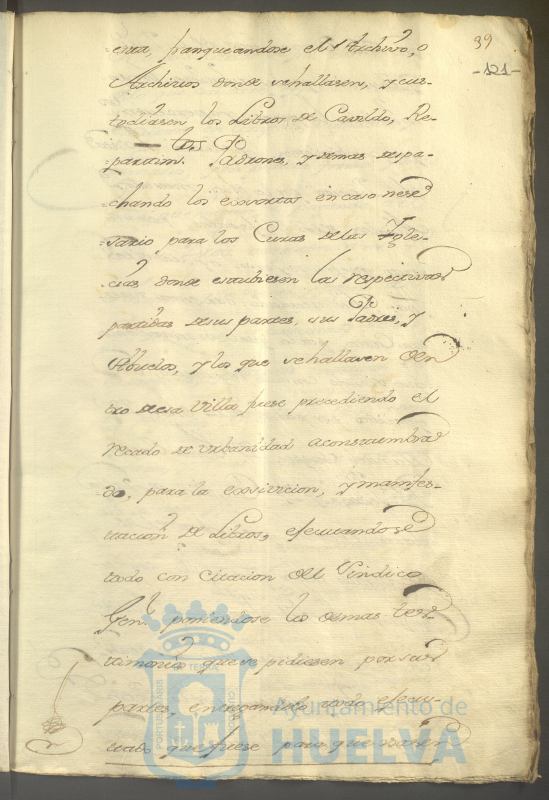 39
-121-
cura, franqueandose el Archivo, o
Archivos donde se hallasen, y cus-
todiasen los Libros de Cavildo, Re-
partim.tos Padrones, y demas despa-
chando los exortos en caso nece
sario para los Curas de las Ygle-
cias donde estubiesen las respectivas
partidas de sus partes, sus Padres, y
Abuelos, y los que se hallasen den
tro de esa Villa fuese precediendo el
recado de urbanidad acostumbra
do, para la exsivicion, y manifes-
tacion de Libros, efectuandose
todo con citacion del Sindico
Gen.l poniendose los demas tes
timonios que se pidiesen por sus
partes, entregandolo todo efectu
tuado que fuese para que
PORTUS MARIS
ET TERRAE
CUSTODIA
Ayuntamiento de
HUELVA